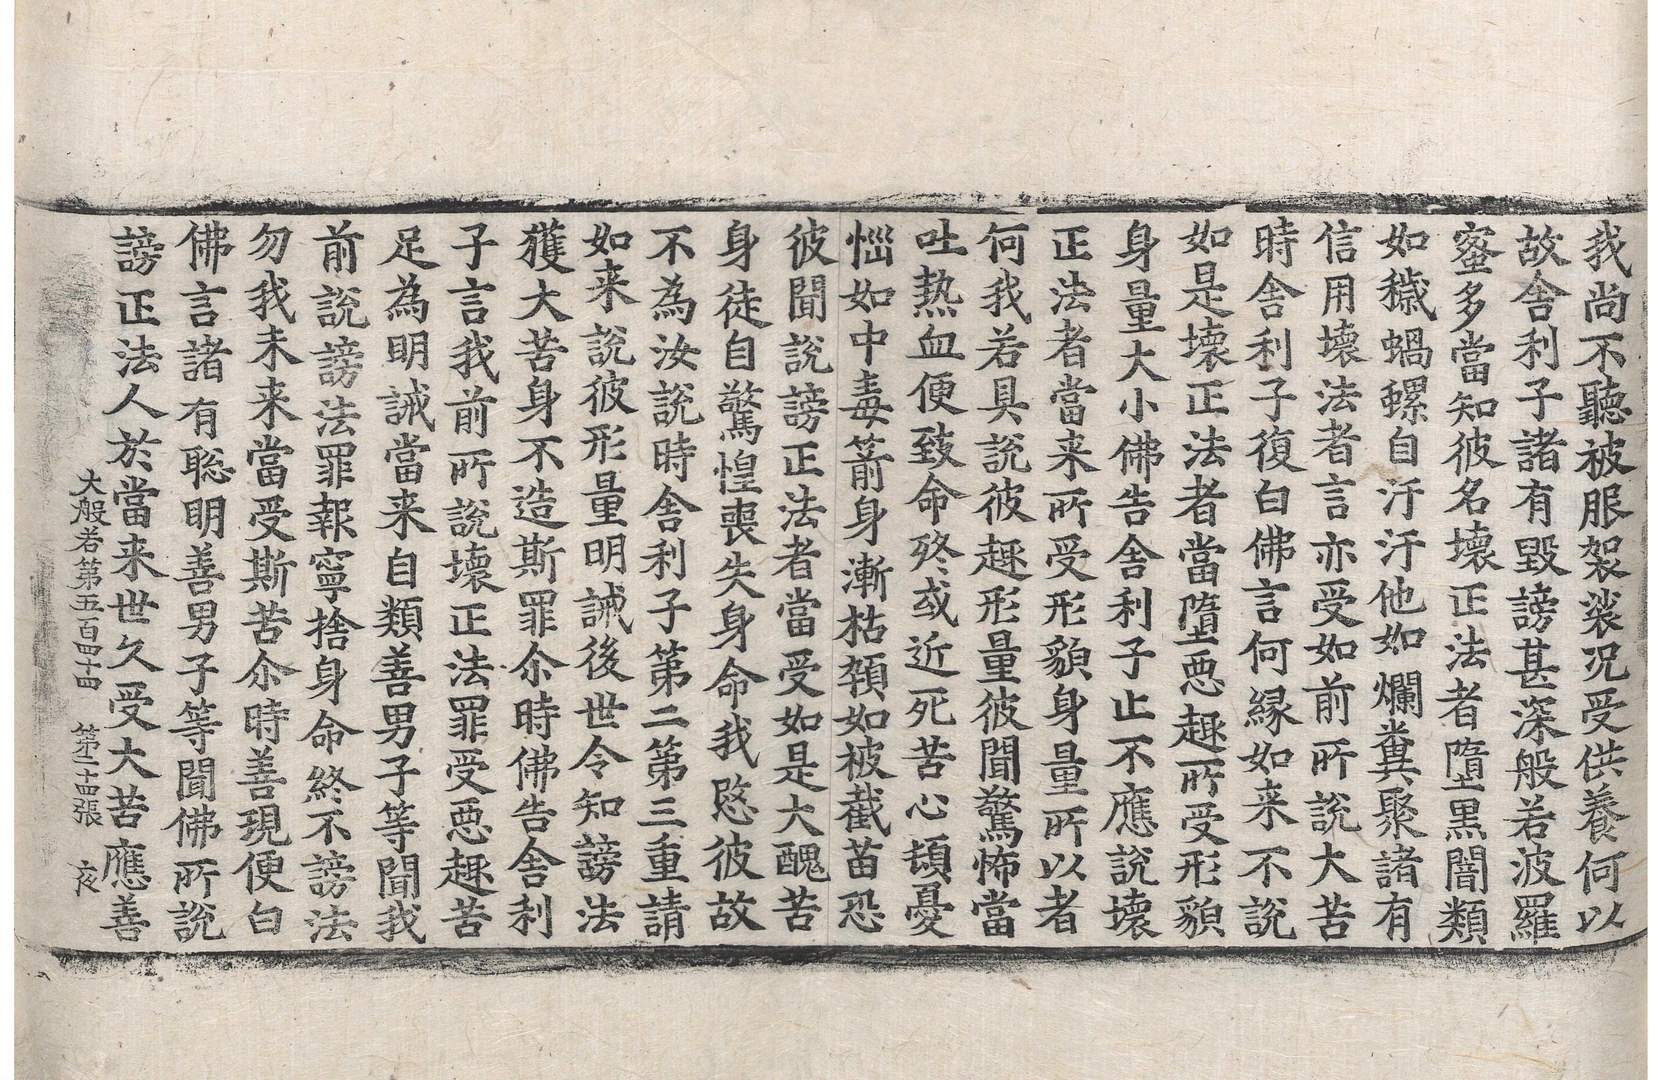 我尚不聽被服袈裟况受供養何以
故舍利子諸有毀謗甚深般若波羅
蜜多當知彼名壞正法者墮黒闇類
如穢蝸螺自汙汙他如爛糞聚諸有
信用壞法者言亦受如前所說大苦
時舍利子復白佛言何縁如来不說
如是壞正法者當墮惡趣所受形貌
身量大小佛告舍利子止不應說壞
正法者當来所受形貌身量所以者
何我若具說彼趣形量彼聞驚怖當
吐熱血便致命終或近死苦心頓憂
惱如中毒箭身漸枯顇如被截苗恐
彼聞說謗正法者當受如是大醜苦
身徒自驚惶喪失身命我愍彼故
不為汝說時舍利子第二第三重請
如来說彼形量明誡後世令知謗法
獲大苦身不造斯罪尒時佛告舍利
子言我前所說壞正法罪受惡趣苦
足為明誡當来自類善男子等聞我
前說謗法罪報寧捨身命終不謗法
勿我未来當受斯苦尒時善現便白
佛言諸有聡明善男子等聞佛所說
謗正法人於當来世久受大苦應善
大般若第五百四十四 第二十四張 夜